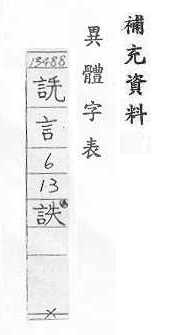 補充資料
異體字表
13488
詵
言
6
13
詄
×